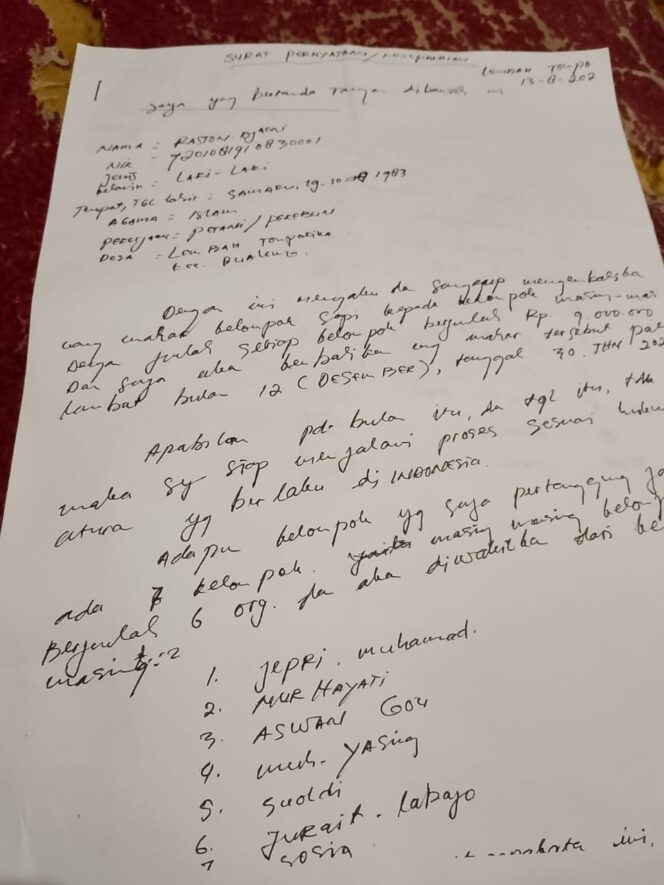 SURAT PERNYATAAN/
LEMBAH Tompo
13-8-202
Saya yang bertanda Tangan dibawah ini
NAMA : RASTON DJAENI
NIK : 7201081910830001
Jenis
kelamin : LAKI-LAKI
Tempat, TGL lahir : 19-10-1983
AGAMA = ISLAM
PEKERJAAN = PETANI/PEKEBUN
DESA = LEMBAH Tompotika
KEC. BUALEMO.
Dengan ini mengaku dan sanggup mengembalika
uang mahar kelompok sapi kepada kelompok masing-mas
Dengan jumlah setiap kelompok berjumlah Rp. 9.000.000
Dan saya aka kembalikan uang mahar tersebut pali
lambat bulan 12 (DESEMBER), tanggal 30. THN 202
Apabilah pda bulan itu, dan tgl itu, tdk
maka sy siap menjalani proses sesuai hukum
atura yg berlaku di INDONESIA.
Adapun kelompok yg saya pertanggung ja
ada 7 kelompok. masing masing kelomp
Berjumlah 6 org. dan aka diwakilka dari ke
masing2
1. Jepri. muhamad.
2. NUR HAYATI
3. ASWAN GOU
4. muh. YASing
5. Suoldi
6. Jurait. labajo
7 sosia
ini.